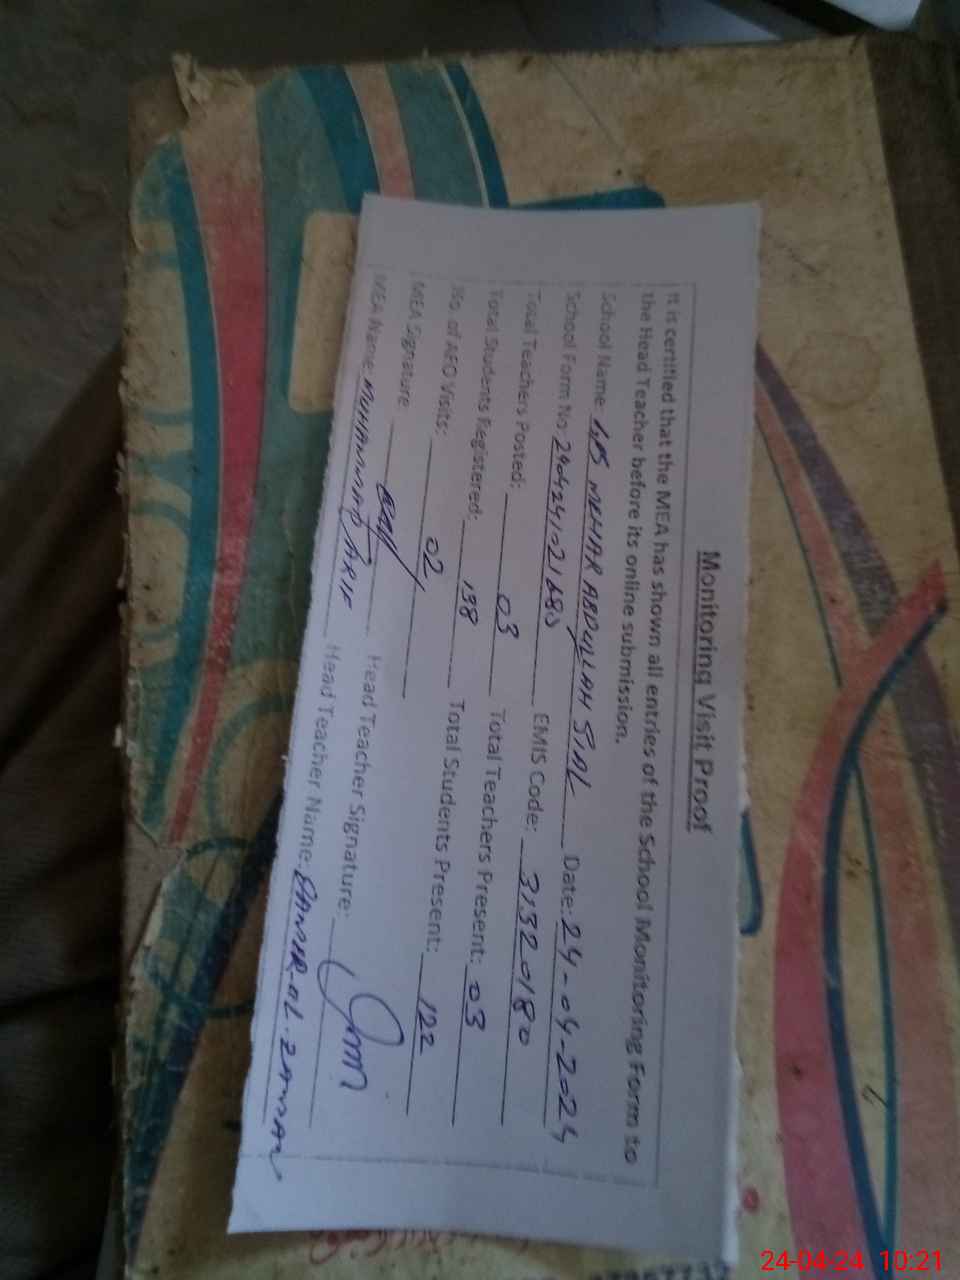 Monitoring Visit Proof
It is certified that the MEA has shown all entries of the School Monitoring Form to
the Head Teacher before its online submission.
School Name: GPS MEHAR ABDULLAH SIAL Date: 24-04-2024
School Form No: EMIS Code: 31320180
Total Teachers Posted: 03 Total Teachers Present: 03
Total Students Registered: 138 Total Students Present: 122
No. of AEO Visits: 02
MEA Signature: Head Teacher Signature:
MEA Name: MUHAMMAD ARIF Head Teacher Name:
24-04-24 10:21